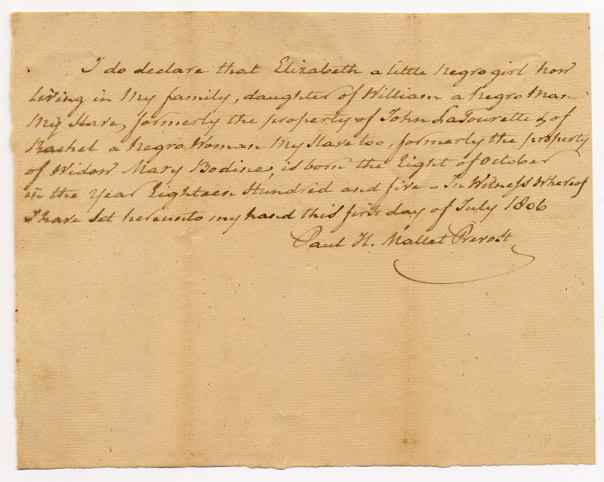 I do declare that Elizabeth a little Negro girl now
living in My family, daughter of William a Negro Man
My Slave, formerly the property of John LaTourette & of
Rachel a Negro Woman My Slave too, formerly the property
of Widow Mary Bodine, is born the Eight of October
in the Year Eighteen Hundred and five - In Witness Whereof
I have set hereunto my hand this first day of July 1806
Paul H. Mallet Prevost